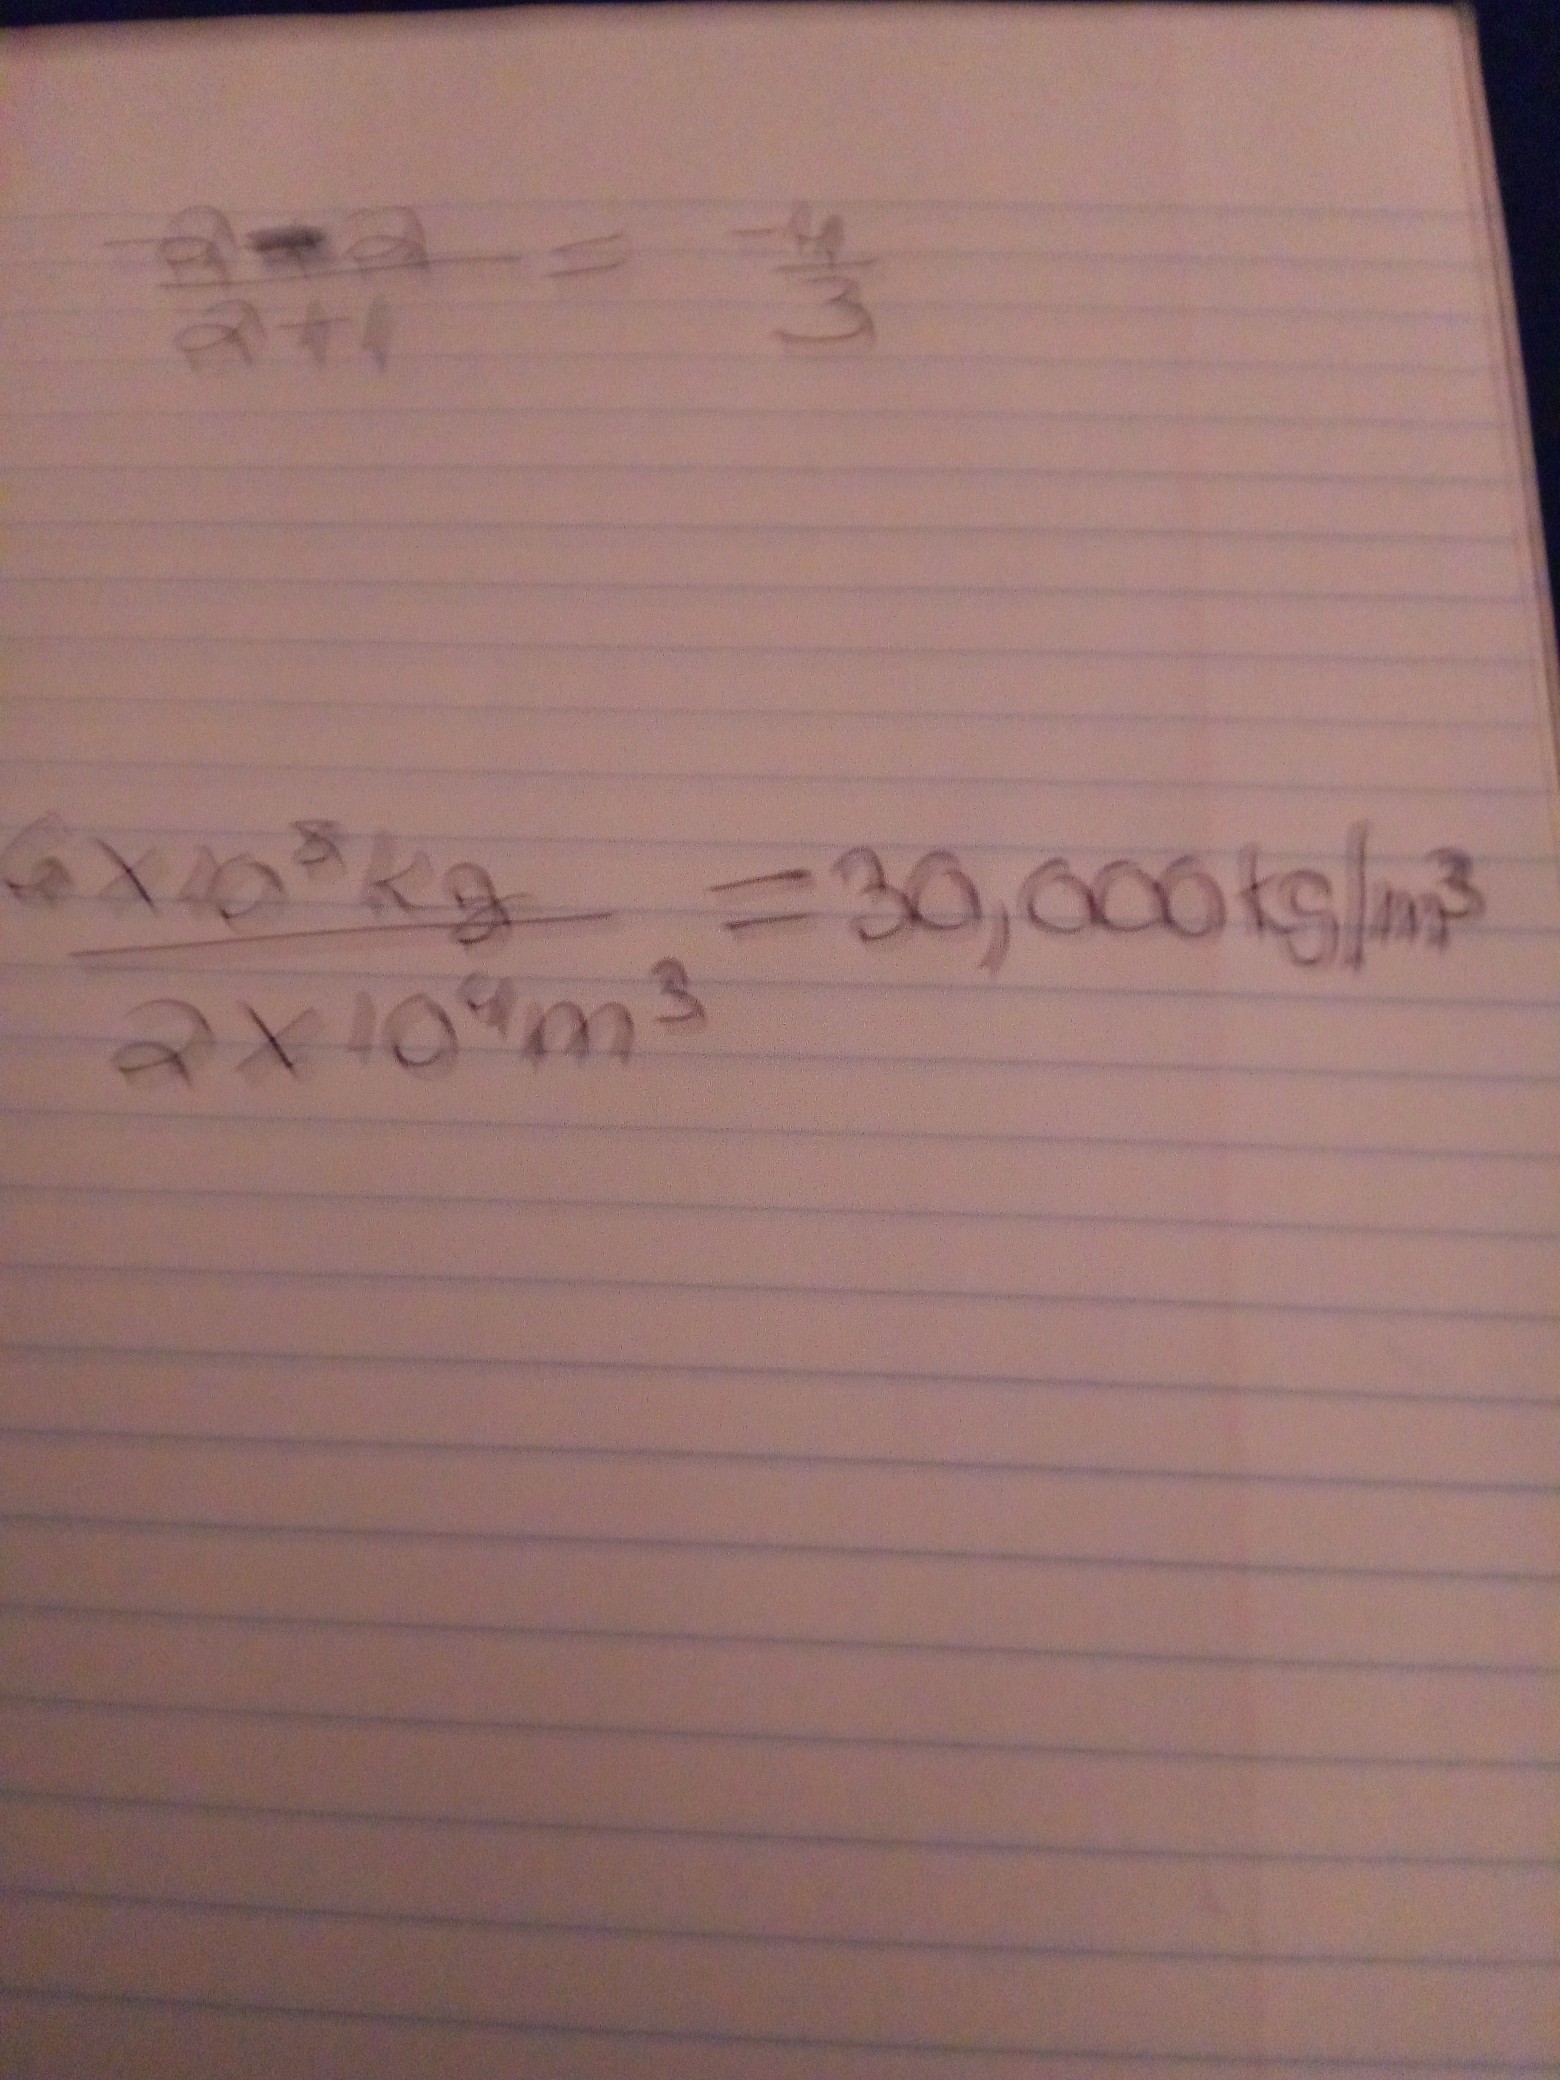 -2-2/2+1 = -4/3
6x10⁸kg/2x10⁴m³ = 30,000kg/m³